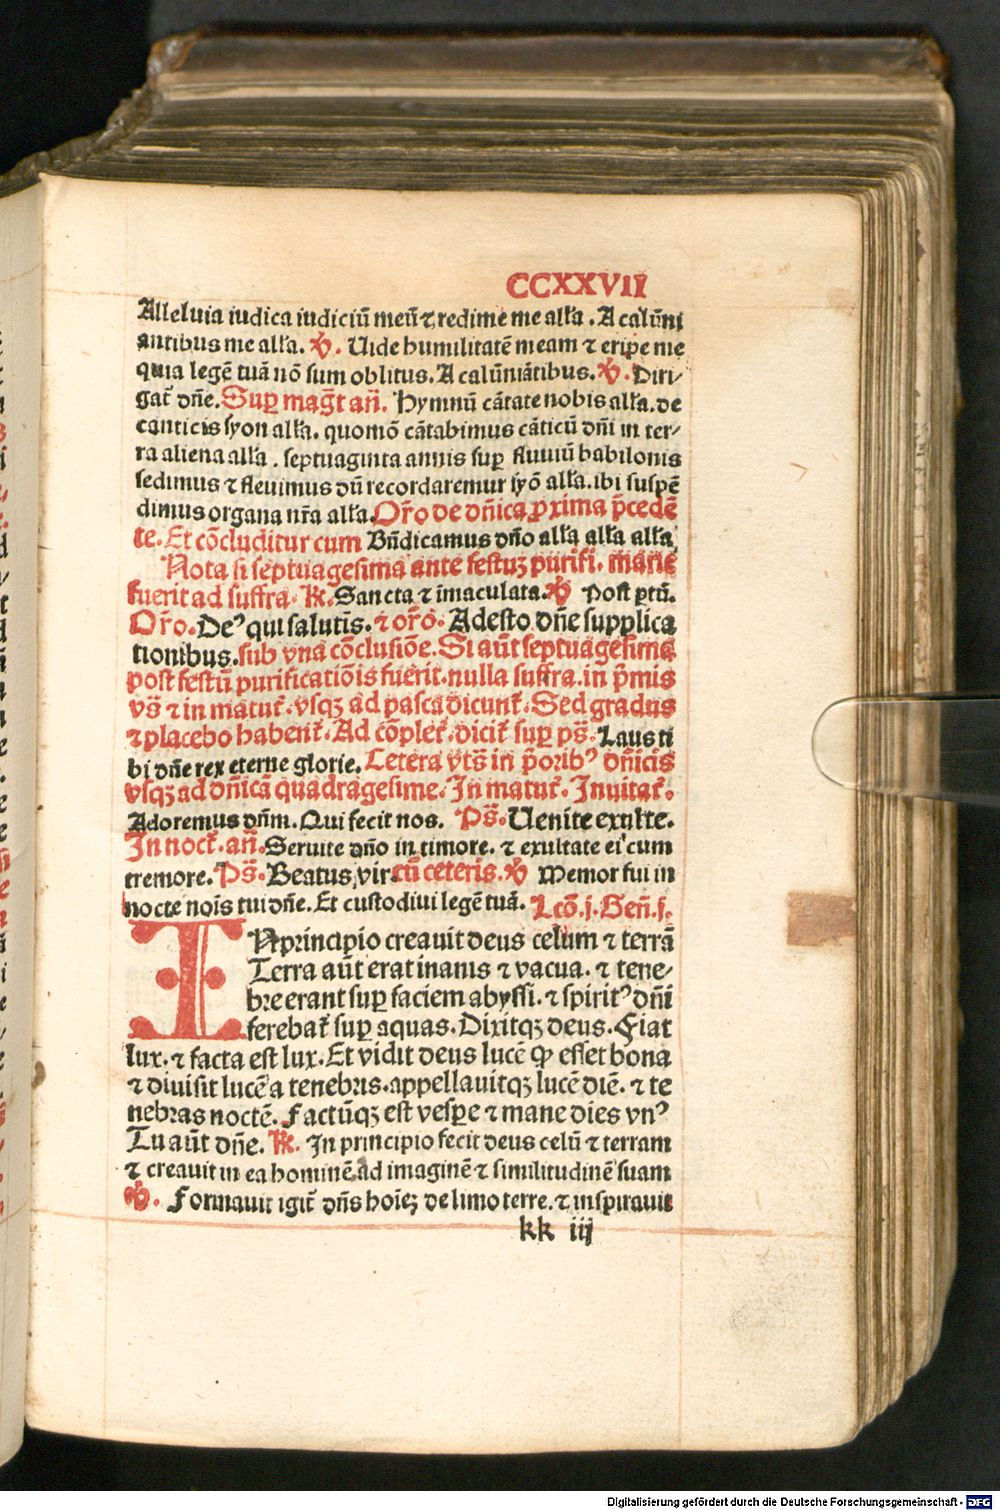 CCXXVII
Alleluia iudica iudiciū meū ⁊ redime me alľa . A calūni
antibus me alľa. ℣. Uide humilitatē meam ⁊ eripe me
quia legē tuā nō sum oblitus. A calūniātibus. ℣. Diri⸗
gat᷑ dn̄e. Suꝑ mag̅t an̄. Hymnū cātate nobis alľa. de
canticis syon alľa. quomō cātabimus cāticū dn̄i in ter⸗
ra aliena alľa . septuaginta annis suꝑ fluuiū babilonis
sedimus ⁊ fleuimus dū recordaremur syō alľa. ibi suspē
dimus organa nr̄a alľa. Or̄o de dn̄ica ꝓxima p̄cedē
te. Et cōcluditur cum Bn̄dicamus dn̄o alľa alľa alľa
Nota si septuagesima ante festuꝫ purifi. marie
fuerit ad suffra. ℟. Sancta ⁊ īmaculata. ℣ Post ꝑtū.
Or̄o. Deꝰ qui salutis. ⁊ or̄o. Adesto dn̄e supplica
tionibus. sub vna cōclusiōe. Si aūt septuagesima
post festū purificatiōis fuerit. nulla suffra. in p̄mis
vs̄ ⁊ in matut᷑. vsqꝫ ad pasca dicunt᷑. Sed gradus
⁊ placebo habent᷑. Ad cōplet᷑. dicit᷑ suꝑ ps̄. Laus ti
bi dn̄e rex eterne glorie. Cetera vts̄ in p̄oribꝰ dn̄icis
vsqꝫ ad dn̄icā quadragesime. In matut᷑. Inuitat᷑.
Adoremus dn̄m. Qui fecit nos. Ps̄. Uenite exulte.
In noct᷑. an̄. Seruite dn̄o in timore. ⁊ exultate ei cum
tremore. Ps̄. Beatus vir. cū ceteris. ℣ Memor fui in
nocte nois tui dn̄e. Et custodiui legē tuā. Lcō. j. Gen̄. j.
IN principio creauit deus celum ⁊ terrā
Terra aūt erat inanis ⁊ vacua. ⁊ tene⸗
bre erant suꝑ faciem abyssi. ⁊ spiritꝰ dn̄i
ferebat᷑ suꝑ aquas. Dixitqꝫ deus. Fiat
lux. ⁊ facta est lux. Et vidit deus lucē ꝙ esset bona
⁊ diuisit lucē a tenebris. appellauitqꝫ lucē diē. ⁊ te
nebras noctē. Factūqꝫ est vesꝑe ⁊ mane dies vnꝰ
Tu aūt dn̄e. ℟. In principio fecit deus celū ⁊ terram
⁊ creauit in ea hominē ad imaginē ⁊ similitudinē suam
℣. Formauit igit᷑ dn̄s hoīeꝫ de limo terre. ⁊ inspirauit
kk iij
Digitalisierung gefördert durch die Deutsche Forschungsgemeinschaft - DFG